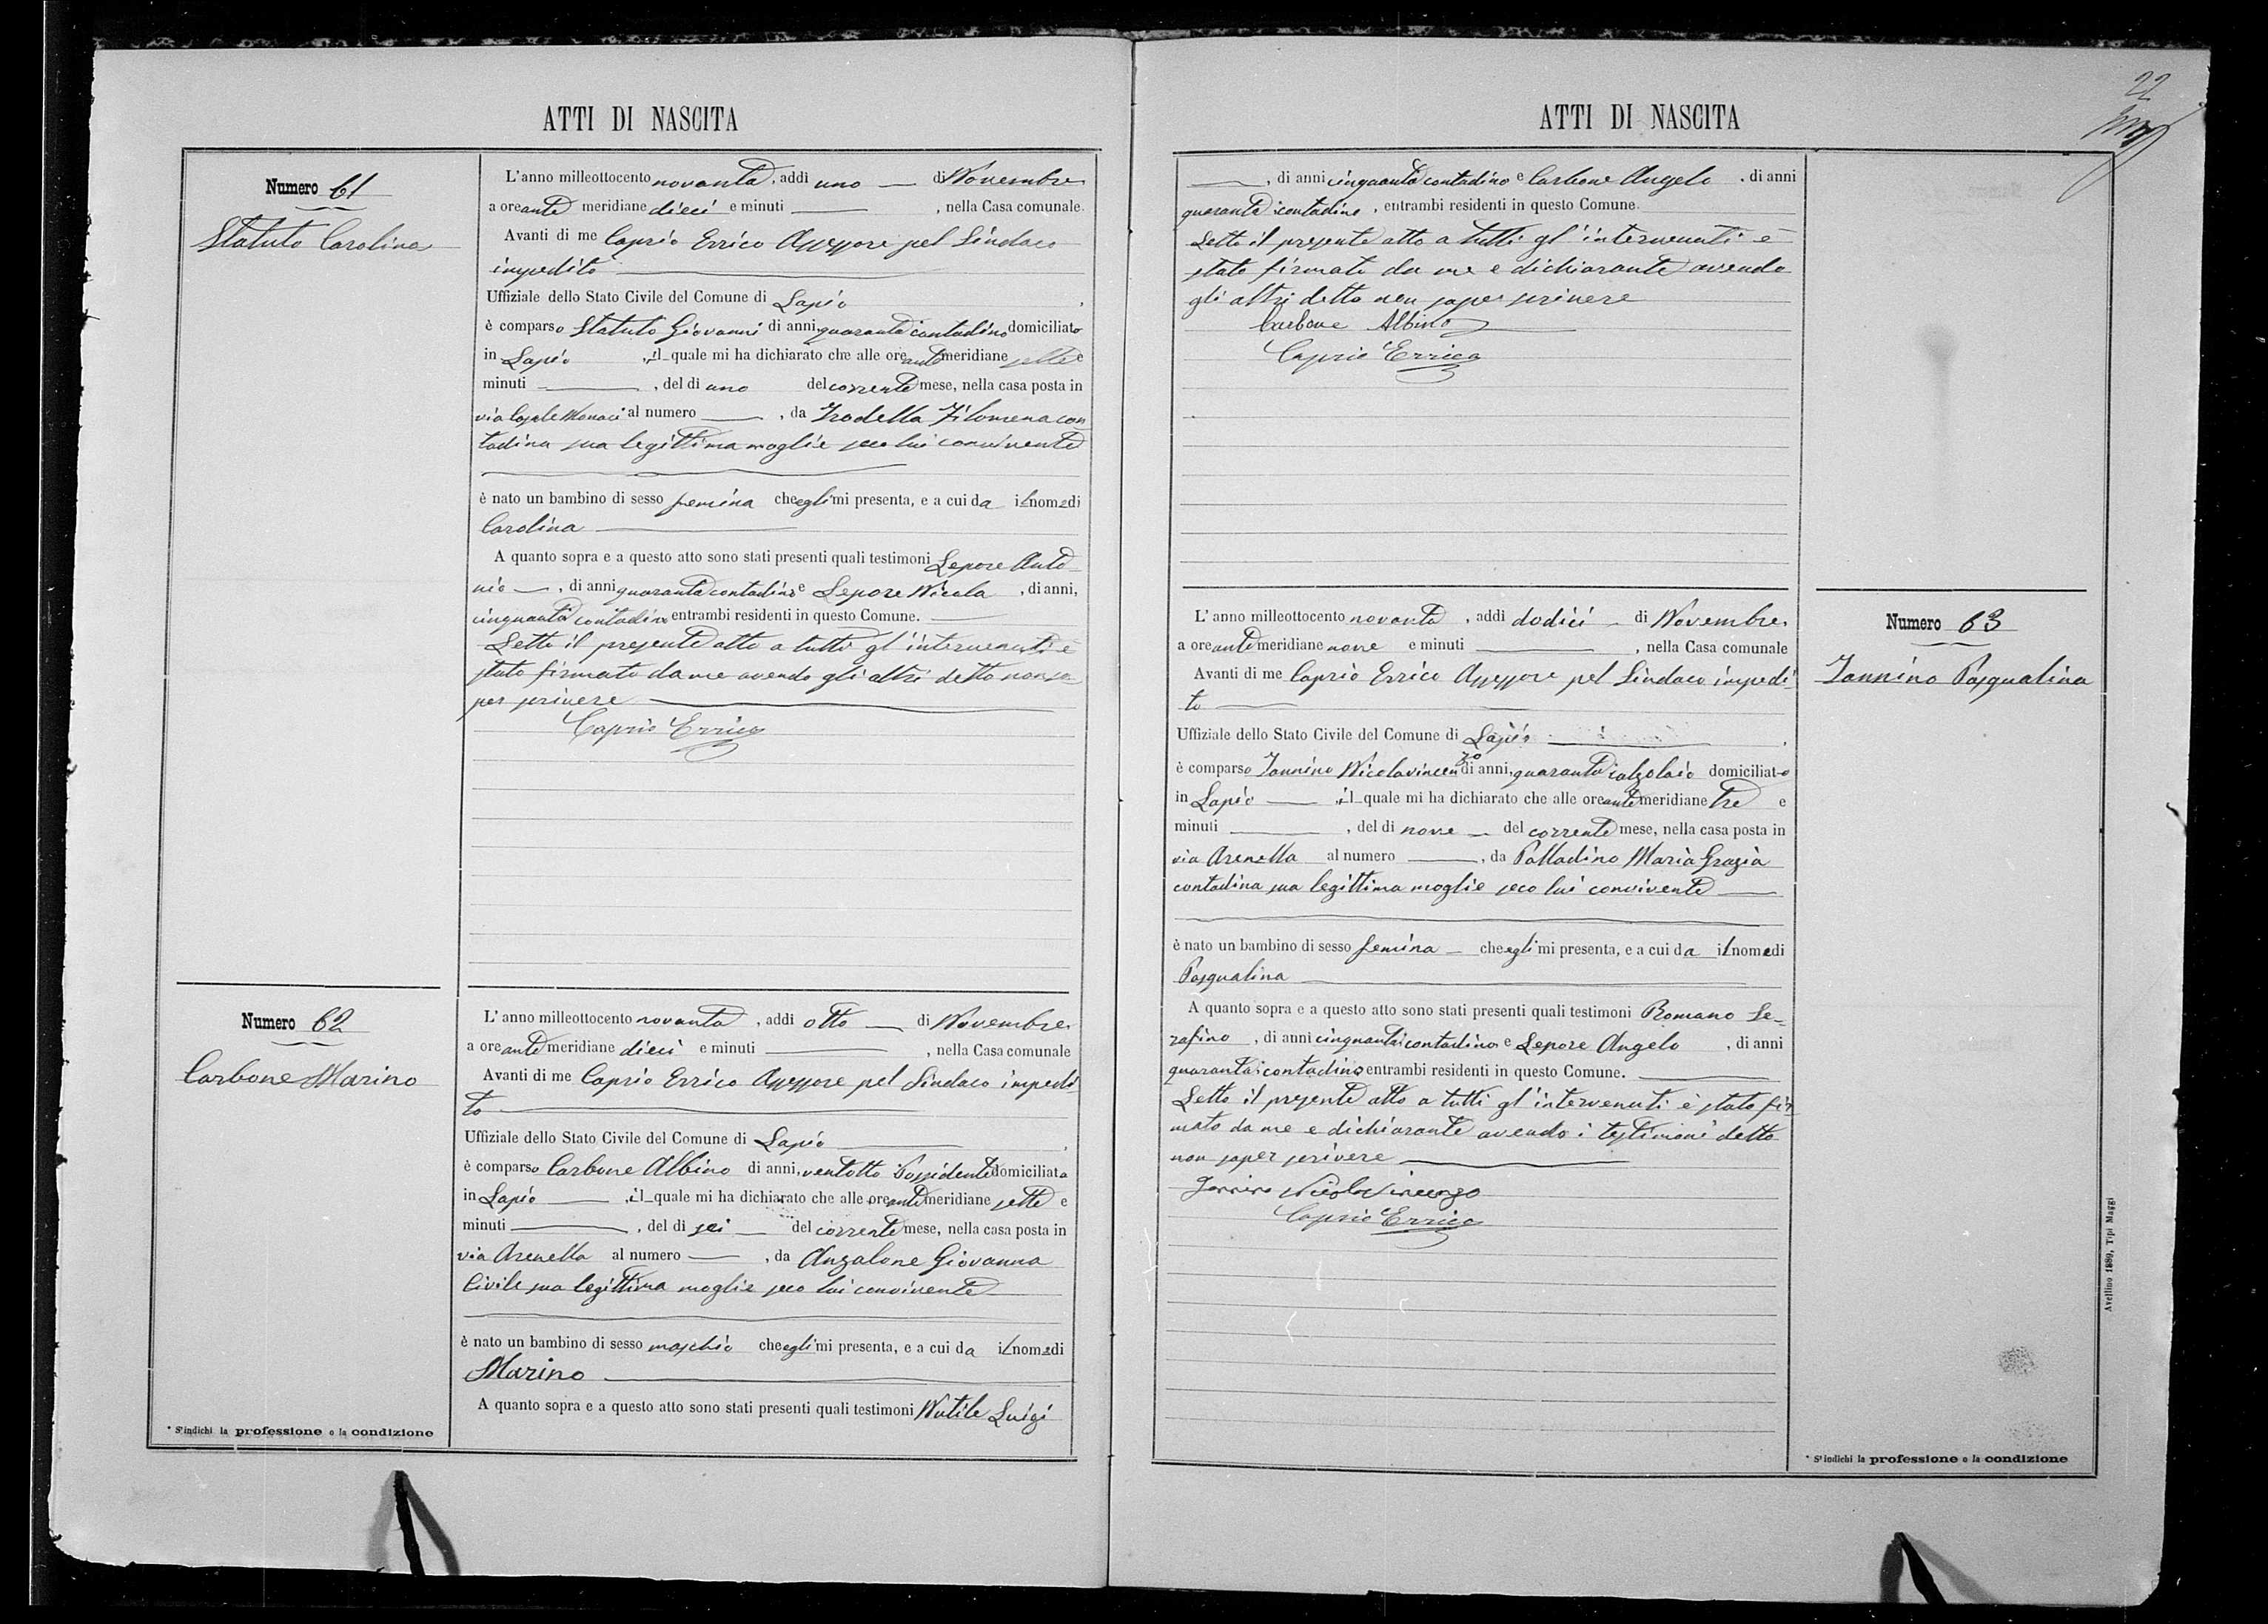 ATTI DI NASCITA
Numero 61
Statuto Carolina
L'anno milleottocento novanta, addì uno — di Novembre
a ore ante meridiane dieci e minuti —, nella Casa comunale.
Avanti di me Caprio Errico Assessore pel Sindaco
impedito
Uffiziale dello Stato Civile del Comune di Lapio,
è comparso Statuto Giovanni di anni quaranta contadino domiciliato
in Lapio, il quale mi ha dichiarato che alle ore ante meridiane sette e
minuti —, del dì uno del corrente mese, nella casa posta in
via Casale Monaci al numero —, da Irodella Filomena con
tadina sua legittima moglie seco lui convivente
è nato un bambino di sesso femina che egli mi presenta, e a cui da il nome di
Carolina
A quanto sopra e a questo atto sono stati presenti quali testimoni Lepore Anto
nio —, di anni quaranta contadino e Lepore Nicola, di anni,
cinquanta contadino entrambi residenti in questo Comune.
Letto il presente atto a tutti gl'intervenuti è
stato firmato da me avendo gli altri detto non sa
per scrivere
Caprio Errico
Numero 62
Carbone Marino
L'anno milleottocento novanta, addì otto — di Novembre
a ore ante meridiane dieci e minuti —, nella Casa comunale
Avanti di me Caprio Errico Assessore pel Sindaco impedi
to
Uffiziale dello Stato Civile del Comune di Lapio,
è comparso Carbone Albino di anni, ventotto Possidente domiciliato
in Lapio —, il quale mi ha dichiarato che alle ore ante meridiane sette e
minuti —, del dì sei — del corrente mese, nella casa posta in
via Arenella al numero —, da Anzalone Giovanna
Civile sua legittima moglie seco lui convivente
è nato un bambino di sesso maschio che egli mi presenta, e a cui da il nome di
Marino
A quanto sopra e a questo atto sono stati presenti quali testimoni Nutile Luigi
* S'indichi la professione o la condizione
ATTI DI NASCITA
22
—, di anni cinquanta contadino e Carbone Angelo, di anni
quaranta contadino, entrambi residenti in questo Comune.
Letto il presente atto a tutti gl'intervenuti è
stato firmato da me e dichiarante avendo
gli altri detto non saper scrivere
Carbone Albino
Caprio Errico
Numero 63
Iannino Pasqualina
L'anno milleottocento novanta, addì dodici — di Novembre
a ore ante meridiane nove e minuti —, nella Casa comunale
Avanti di me Caprio Errico Assessore pel Sindaco impedi
to
Uffiziale dello Stato Civile del Comune di Lapio
è comparso Iannino Nicolavincenzo di anni, quaranta calzolaio domiciliato
in Lapio —, il quale mi ha dichiarato che alle ore ante meridiane tre e
minuti —, del dì nove — del corrente mese, nella casa posta in
via Arenella al numero —, da Palladino Maria Grazia
contadina sua legittima moglie seco lui convivente —
è nato un bambino di sesso femina — che egli mi presenta, e a cui da il nome di
Pasqualina
A quanto sopra e a questo atto sono stati presenti quali testimoni Romano Se-
rafino, di anni cinquanta contadino e Lepore Angelo, di anni
quaranta contadino entrambi residenti in questo Comune.
Letto il presente atto a tutti gl'intervenuti è stato fir
mato da me e dichiarante avendo i testimoni detto
non saper scrivere
Iannino Nicola Vincenzo
Caprio Errico
* S'indichi la professione o la condizione
Avellino 1889, Tipi Maggi